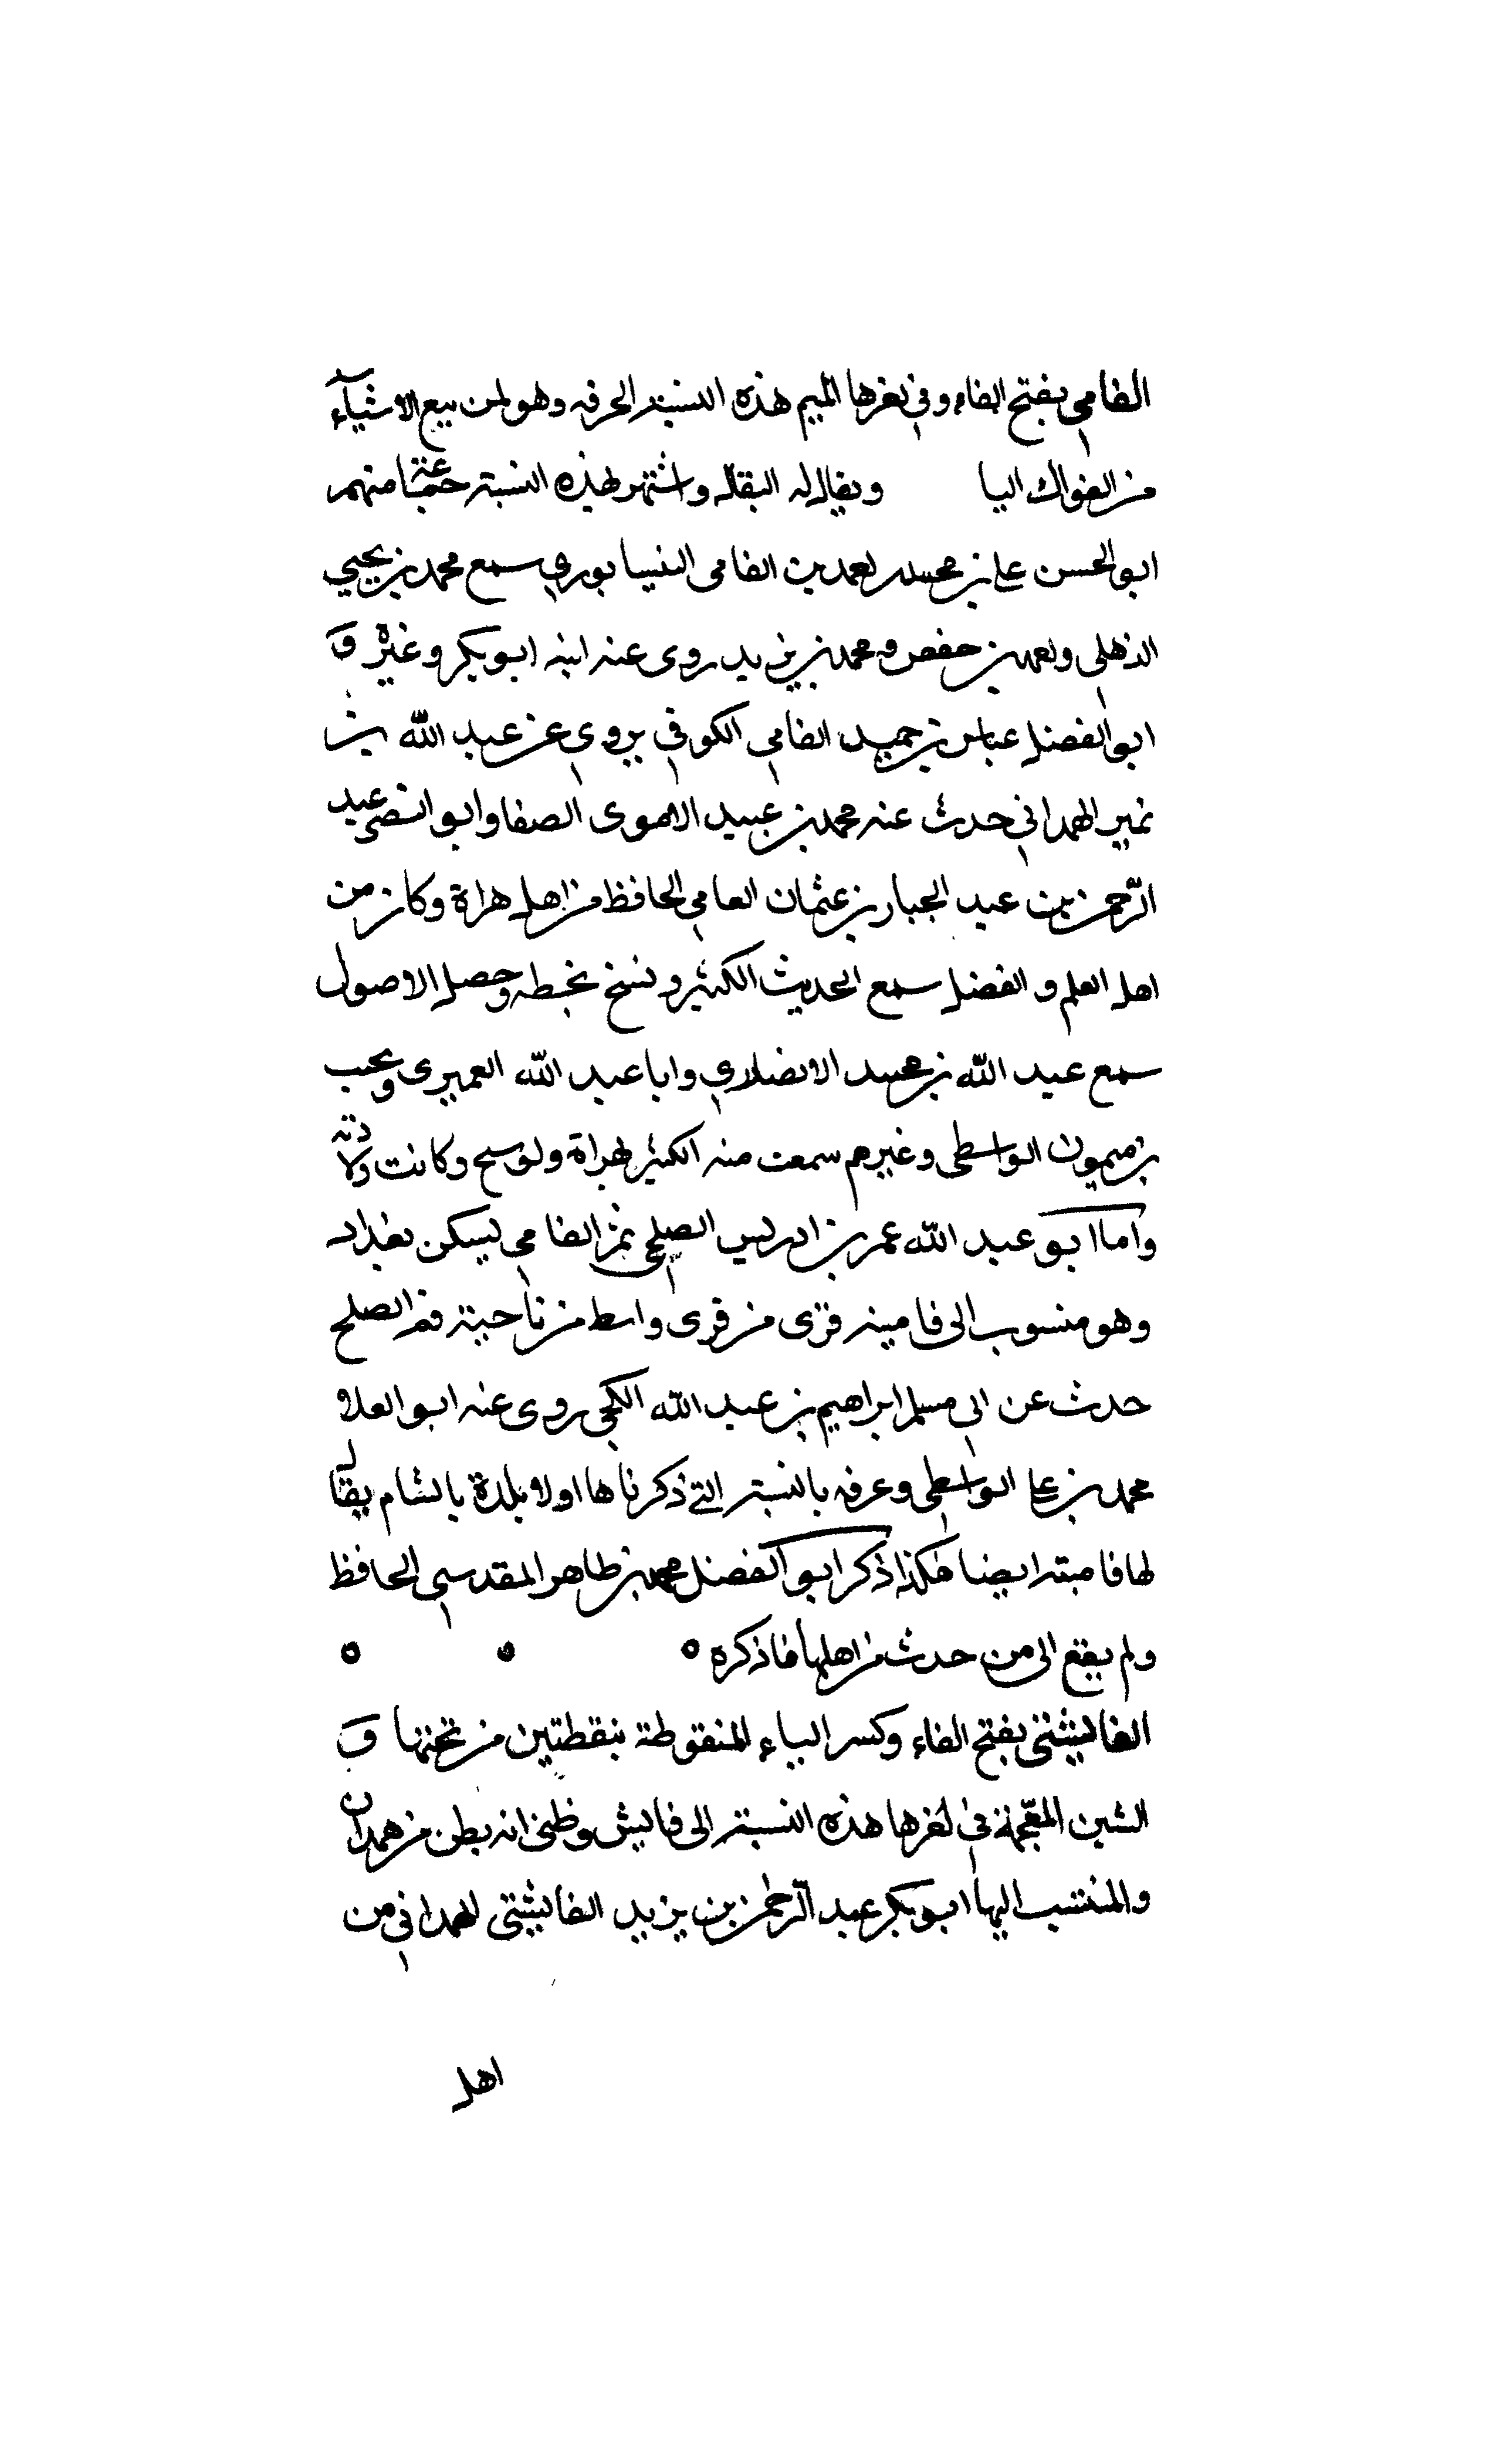 الفامي بفتح الفاء وفي اخرها الميم هذه النسبة الى الحرفه وهو لمن يبيع الاشياء
من الفواكه اليا ويقال له البقال واشتهر بهذه النسبة جماعة منهم
ابو الحسن علي بن محمد احمد بن الفامي النيسابوري سمع محمد بن يحيى
الذهلي واحمد بن حفص ومحمد بن يزيد روى عنه ابنه ابو بكر وغيره و
ابو الفضل عباس بن حميد الفامي الكوفي يروي عن عبد الله بن
نمير الهمداني حدث عنه محمد بن عبيد الاموى الصفا وابو النصر عبد
الرحمن بن عبد الجبار بن عثمان الفامي الحافظ من اهل هراة وكان من
اهل العلم والفضل سمع الحديث الكثير ونسخ بخطه وحصل الاصول
سمع عبد الله بن محمد الانصاري وابا عبد الله العميرى ونجيب
بن ميمون الواسطي وغيرهم سمعت منه الكثير بهراة وبوشنج وكانت ولادته
واما ابو عبد الله عمر بن ادريس الصلحي ثم الفامي يسكن بغداد
وهو منسوب الى فامية قرى من قرى واسط من ناحية فم الصلح
حدث عن ابي مسلم ابراهيم بن عبد الله الكجي روى عنه ابو العلا
محمد بن علي الواسطي وعرفه بالنسبة التي ذكرناها اولا بلدة بالشام يقال
لها فامية ايضا هكذا ذكر ابو الفضل محمد بن طاهر المقدسي الحافظ
ولم يقع الى من حدث من اهلها فاذكره
الفايشي بفتح الفاء وكسر الياء المنقوطة بنقطتين من تحتها و
الشين المعجمة في اخرها هذه النسبة الى فايش وظني انه بطن من همدان
والمنتسب اليها ابو بكر عبد الرحمن بن يزيد الفايشي الهمداني من
اهل